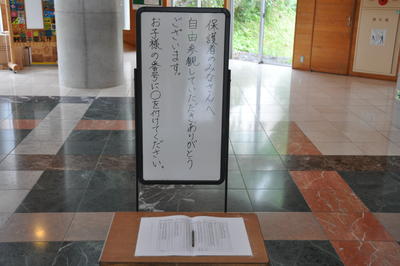 保護者のみなさんへ
自由参観していただきありがとう
ございます。
お子様の番号に○を付けてください。